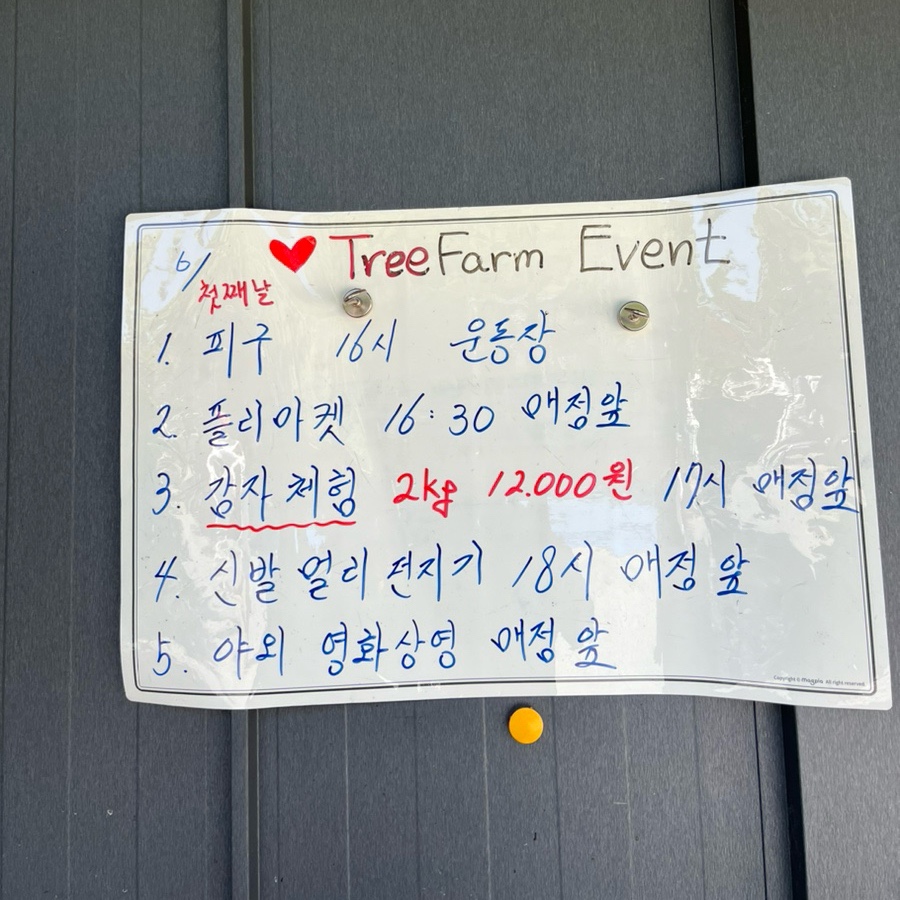 ♥ TreeFarm Event
6/
첫째날
1. 피구 16시 운동장
2. 플리마켓 16:30 매점앞
3. 감자 체험 2kg 12.000원 17시 매점앞
4. 신발 멀리 던지기 18시 매점 앞
5. 야외 영화상영 매점 앞
Copyright © magpie All right reserved.